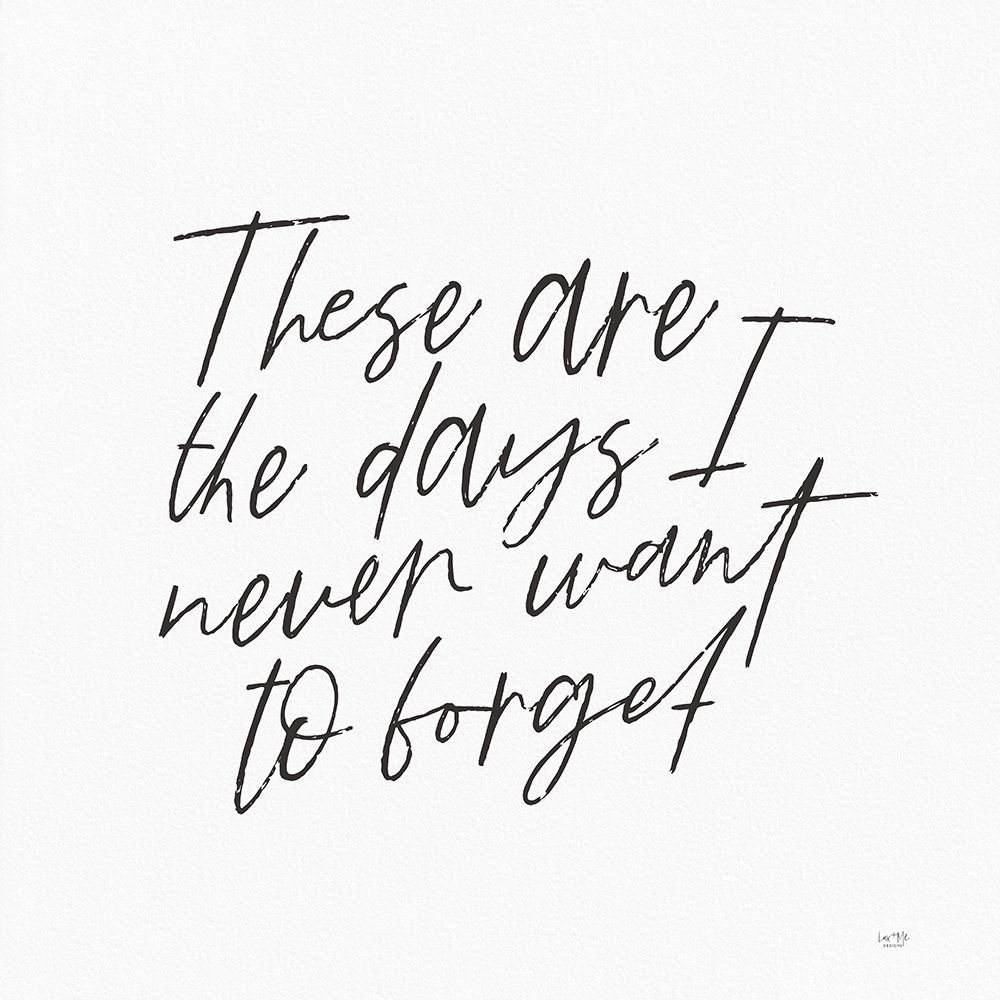 These are
the days I
never want
to forget
Lux + Me
DESIGNS